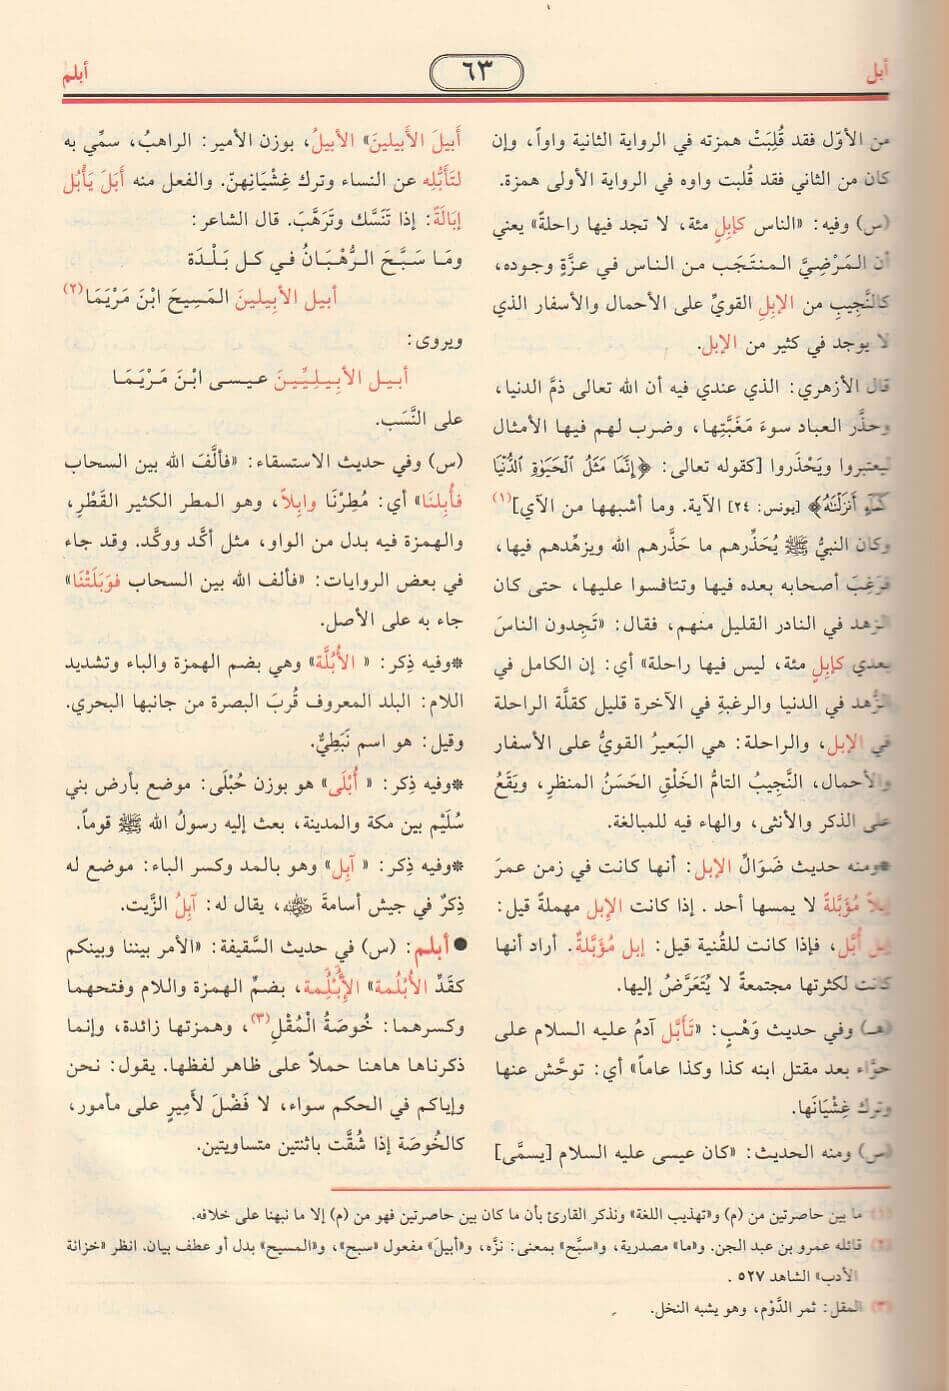 أبل
٦٣
أبلم
من الأوّل فقد قُلِبَتْ همزته في الرواية الثانية واواً، وإن
كان من الثاني فقد قُلبت واوه في الرواية الأولى همزة.
(س) وفيه: «الناس كإبِلٍ مئة، لا تجد فيها راحلةً» يعني
أن المَرْضِيَّ المنتَجَب من الناس في عزَّةِ وجوده،
كالنَّجِيبِ من الإبِلِ القويِّ على الأحمال والأسفار الذي
لا يوجد في كثير من الإبل.
قال الأزهري: الذي عندي فيه أن الله تعالى ذمَّ الدنيا،
وحذَّر العباد سوءَ مَغَبَّتِها، وضرب لهم فيها الأمثال
ليعتبروا ويَحْذَروا [كقوله تعالى: ﴿إِنَّمَا مَثَلُ الْحَيَوٰةِ الدُّنْيَا
كَمَآءٍ أَنزَلْنَٰهُ﴾ [يونس: ٢٤] الآية. وما أشبهها من الآي](١)
وكان النبيُّ ﷺ يُحَذِّرهم ما حَذَّرهم الله ويزهِّدهم فيها،
فرَغِبَ أصحابه بعده فيها وتنافسوا عليها، حتى كان
الزهد في النادر القليل منهم، فقال: «تَجِدون الناسَ
بعدي كإبِلٍ مئة، ليس فيها راحلة» أي: إن الكامل في
الزُّهد في الدنيا والرغبةِ في الآخرة قليل كقلَّة الراحلة
في الإبل، والراحلة: هي البَعيرُ القويُّ على الأسفار
والأحمال، النَّجيبُ التامُّ الخَلْقِ الحَسَنُ المنظرِ، ويَقَعُ
على الذكر والأنثى، والهاء فيه للمبالغة.
*ومنه حديث ضَوَالِّ الإبل: أنها كانت في زمن عمرَ
إبِلاً مُؤَبَّلةً لا يمسها أحد. إذا كانت الإبل مهملةً قيل:
إبل أُبَّل، فإذا كانت للقُنية قيل: إبل مُؤَبَّلةٌ. أراد أنها
كانت لكثرتها مجتمعةً لا يُتَعَرَّضُ إليها.
(هـ) وفي حديث وَهْبٍ: «تَأَبَّل آدمُ عليه السلام على
حوَّاء بعد مقتل ابنه كذا وكذا عاماً» أي: توحَّش عنها
وترك غِشْيَانَها.
(س) ومنه الحديث: «كان عيسى عليه السلام [يسمَّى]
أَبيلَ الأَبيلينَ» الأبيلُ، بوزن الأمير: الراهبُ، سمِّي به
لتَأَبُّلِه عن النساء وترك غِشْيَانِهنّ. والفعل منه أَبَلَ يَأْبُل
إبَالَةً: إذا تَنَسَّك وتَرَهَّبَ. قال الشاعر:
ومَا سَبَّحَ الرُّهْبَانُ في كل بَلْدَة
أبيل الأبِيلينَ المَسِيحَ ابْنَ مَرْيَمَا(٢)
ويروى:
أبيل الأبِيلِيِّينَ عيسى ابْنَ مَرْيَمَا
على النَّسَب.
(س) وفي حديث الاستسقاء: «فألَّفَ الله بين السحاب
فأُبِلنَا» أي: مُطِرْنَا وابِلاً، وهو المطر الكثير القَطْرِ،
والهمزة فيه بدل من الواو، مثل أكَّد ووكَّد. وقد جاء
في بعض الروايات: «فألف الله بين السحاب فوَبَلَتْنَا»
جاء به على الأصل.
*وفيه ذِكر: «الأُبُلَّة» وهي بضم الهمزة والباء وتشديد
اللام: البلد المعروف قُربَ البصرة من جانبها البحري.
وقيل: هو اسم نَبَطِيٌّ.
*وفيه ذِكر: «أُبْلَى» هو بوزن حُبْلَى: موضع بأرض بني
سُلَيْم بين مكة والمدينة، بعث إليه رسولُ الله ﷺ قوماً.
*وفيه ذِكر: «آبِل» وهو بالمد وكسر الباء: موضع له
ذِكرٌ في جيش أسامةَ، يقال له: آبِلُ الزَّيت.
● أبلم: (س) في حديث السَّقيفة: «الأمر بيننا وبينكم
كقَدِّ الأُبْلُمة» الأُِبْلُِمة، بضمِّ الهمزة واللام وفتحهما
وكسرهما: خُوصَةُ الْمُقْلِ(٣)، وهمزتها زائدة، وإنما
ذكرناها هاهنا حملاً على ظاهر لفظها. يقول: نحن
وإياكم في الحكم سواء، لا فَضْلَ لأَمِيرٍ على مأمور،
كالخُوصَة إذا شُقَّت باثنتين متساويتين.
(١) ما بين حاصرتين من (م) و«تهذيب اللغة» ونذكر القارئ بأن ما كان بين حاصرتين فهو من (م) إلا ما نبهنا على خلافه.
(٢) قائله عمرو بن عبد الجن. و«ما» مصدرية، و«سبَّح» بمعنى: نزَّه، و«أبيلَ» مفعول «سبح»، و«المسيح» بدل أو عطف بيان. انظر «خزانة
الأدب» الشاهد ٥٢٧.
(٣) المقل: ثمر الدَّوْم، وهو يشبه النخل.